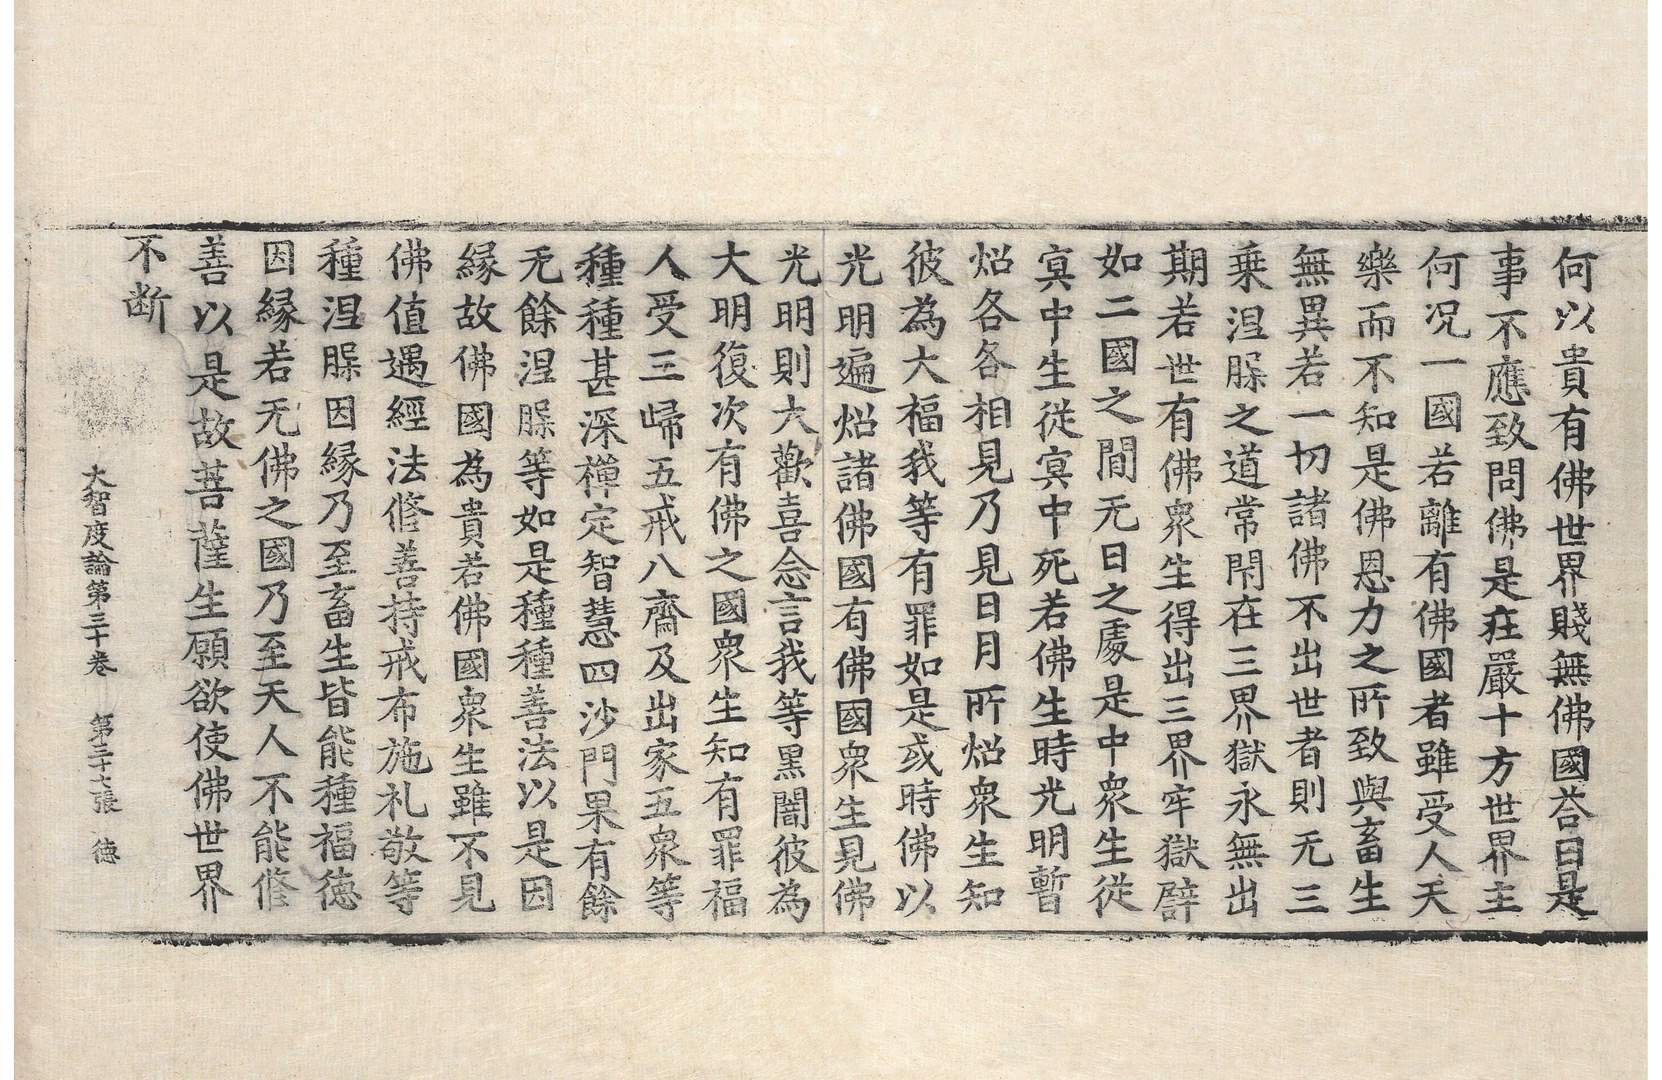 何以貴有佛世界賤無佛國荅曰是
事不應致問佛是㽵嚴十方世界主
何况一國若離有佛國者雖受人天
樂而不知是佛恩力之所致與畜生
無異若一切諸佛不出世者則无三
乗涅槃之道常閇在三界獄永無出
期若世有佛衆生得出三界牢獄辟
如二國之間无日之處是中衆生従
㝠中生従㝠中死若佛生時光明暫
炤各各相見乃見日月所炤衆生知
彼為大福我等有罪如是或時佛以
光明遍炤諸佛國有佛國衆生見佛
光明則大歡喜念言我等黑闇彼為
大明復次有佛之國衆生知有罪福
人受三歸五戒八齋及出家五衆等
種種甚深禪定智慧四沙門果有餘
无餘涅槃等如是種種善法以是因
縁故佛國為貴若佛國衆生雖不見
佛值遇經法脩善持戒布施礼敬等
種涅槃因縁乃至畜生皆能種福德
因縁若无佛之國乃至天人不能脩
善以是故菩薩生願欲使佛世界
不断
大智度論第三十卷 第三十七張 德